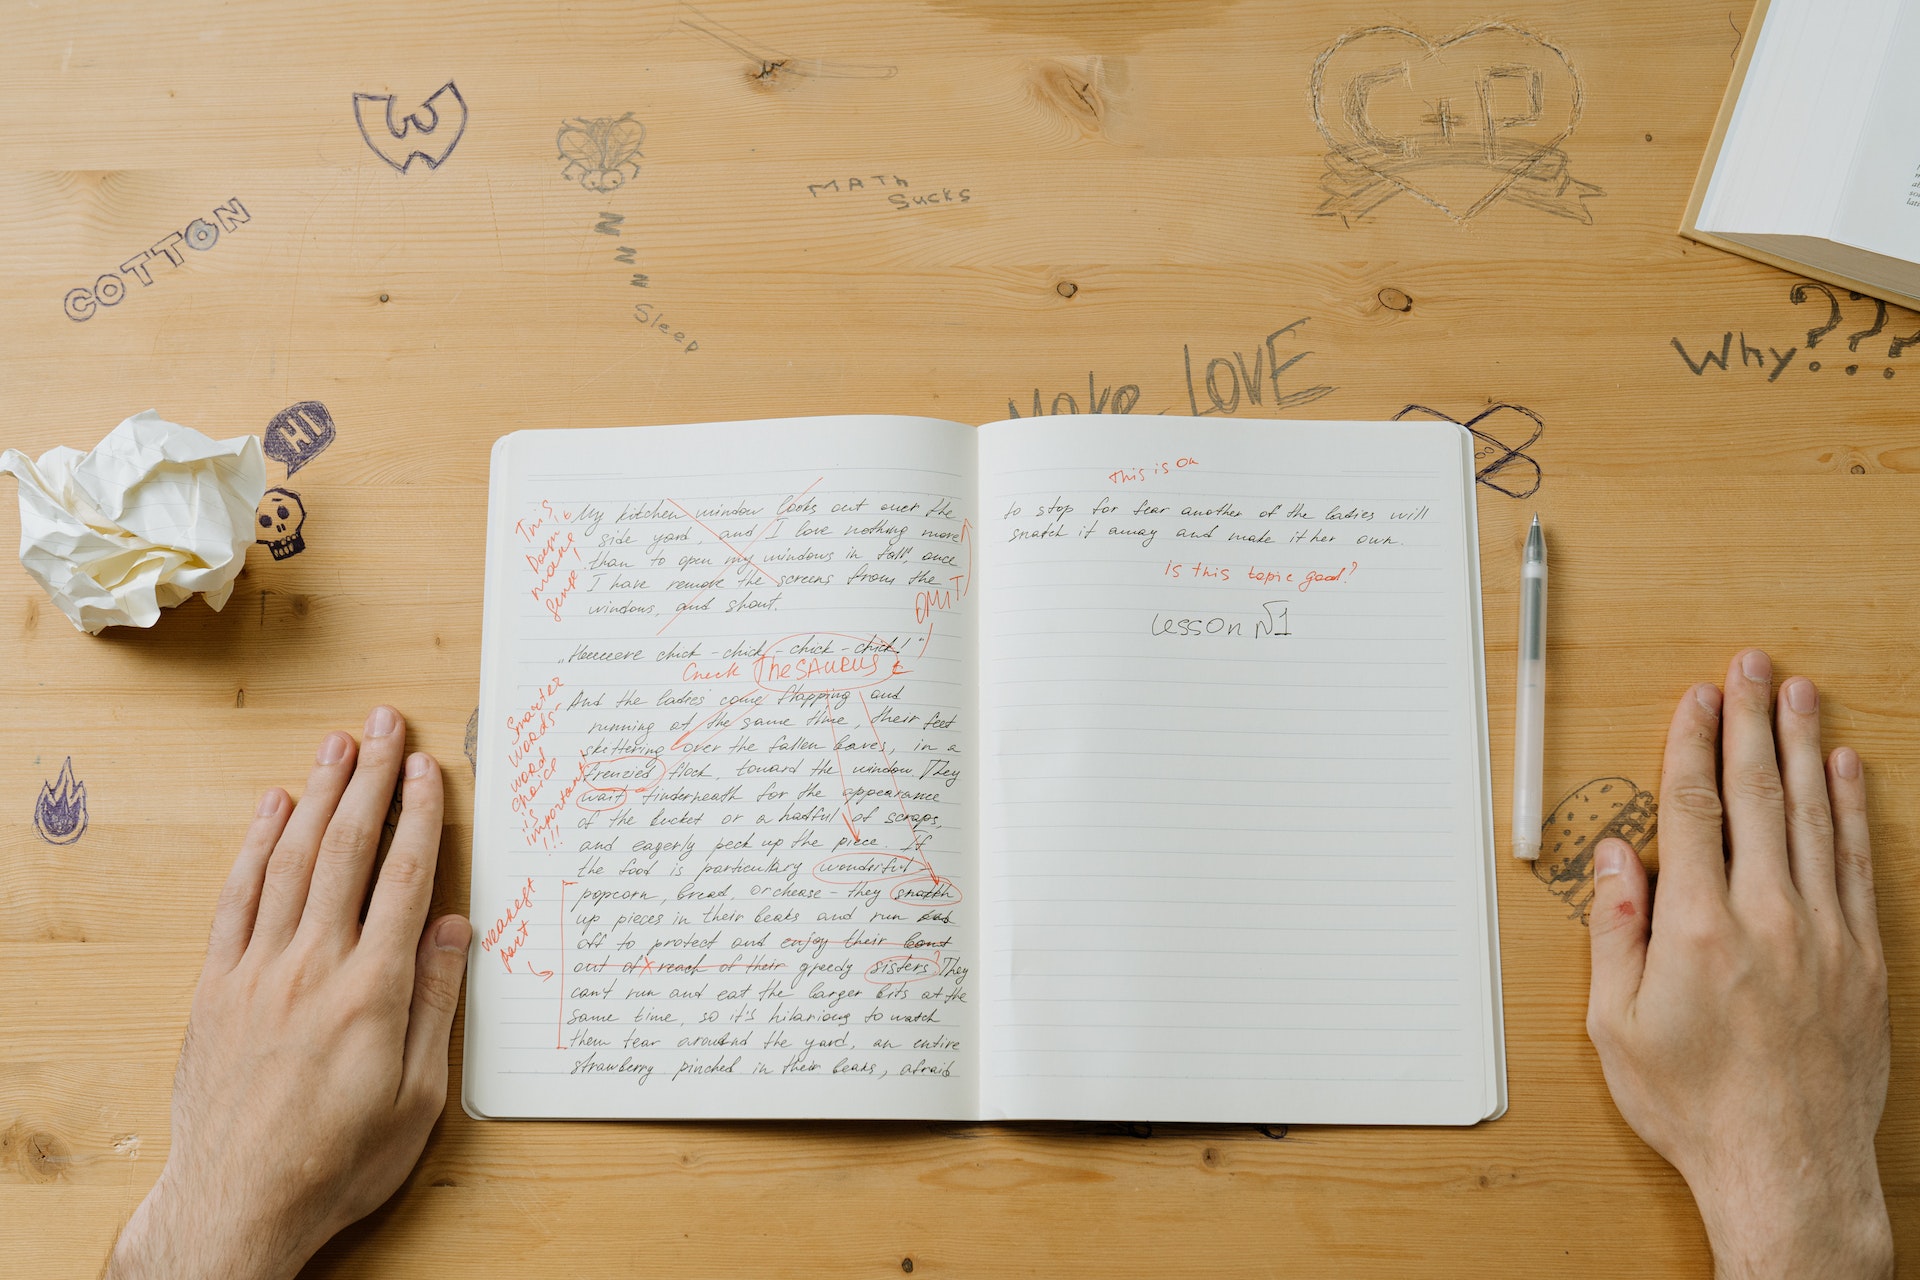 W
COTTON
MATH
SUCKS
N N N Z Z
Sleep
C+P
Make LOVE
Why???
HI
This is ok
This
Doesn't
make
sense!
My kitchen window looks out over the
side yard, and I love nothing more
than to open my windows in fall, once
I have remove the screens from the
windows, and shout.
OMIT
„Heeeere chick - chick - chick - chick!"
Check THESAURUS
Smarter
words-
word
choice
is
important
!!!
And the ladies come flapping and
running at the same time, their feet
skittering over the fallen leaves, in a
frenzied flock, toward the window. They
wait underneath for the appearance
of the bucket or a hatful of scraps,
and eagerly peck up the piece. If
the food is particullary wonderful-
popcorn, bread, or chease - they snatch
weakest
part
up pieces in their beaks and run
off to protect and enjoy their
out of reach of their greedy sisters? They
can't run and eat the larger bits at the
same time, so it's hilarious to watch
them tear around the yard, an entire
strawberry pinched in their beaks, afraid
to stop for fear another of the ladies will
snatch it away and make it her own.
is this topic good?
Lesson №1